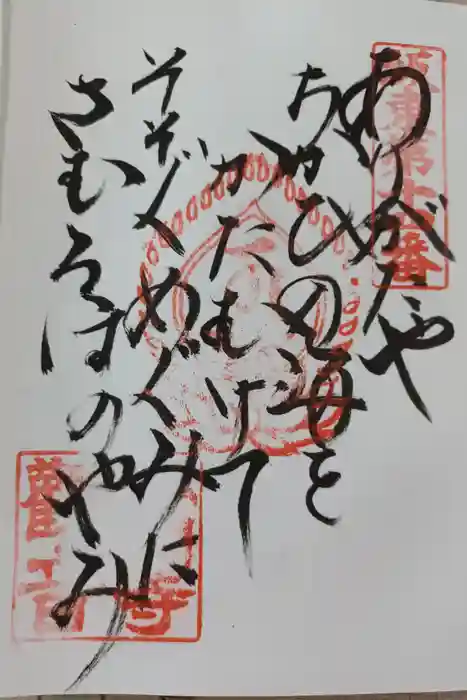 坂東第十四番
ありがたや
ちかひの海を
かたむけて
そそぐめぐみに
さむるほのやみ